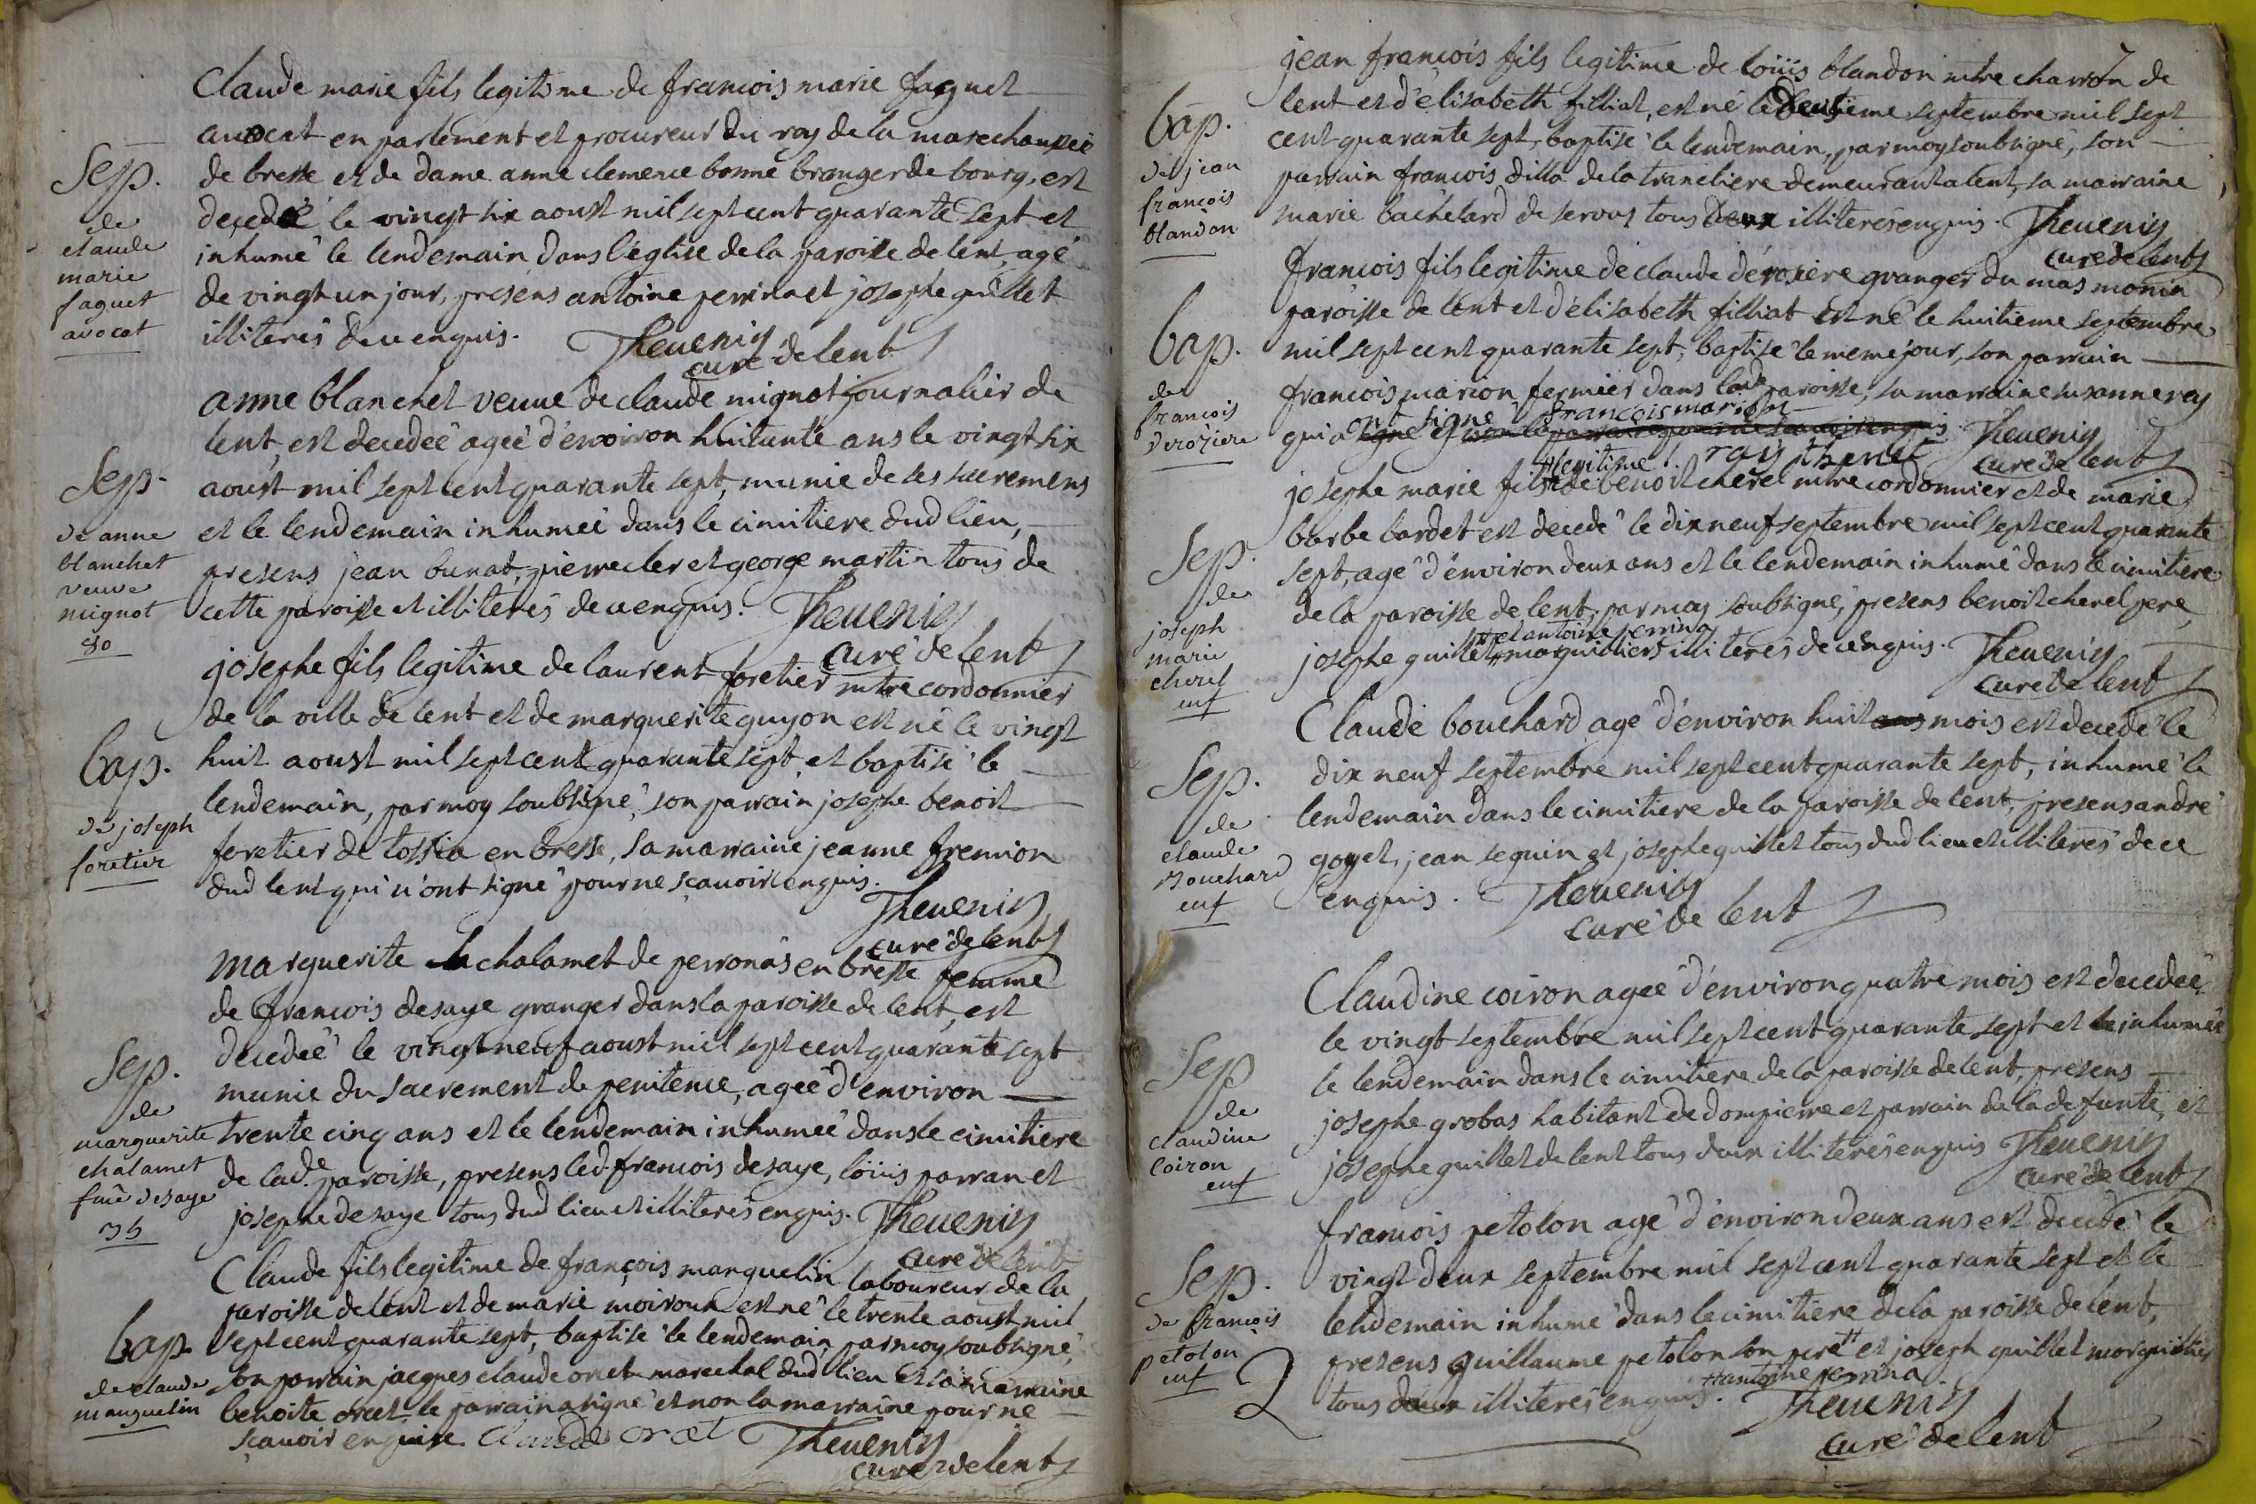 Sep.
de
claude
marie
faguet
avocat
Claude marie fils legitisme de francois marie faguet
avocat en parlement et procureur du roy de la marechaussee
de bresse et de dame anne clemence bonne branger de bourg, est
decedé le vingt six aoust mil sept cent quarante sept et
inhumé le lendemain dans l'église de la paroisse de lent, agé
de vingt un jour, presens antoine perrina et josephe guillet
illiterés de ce enquis. Thevenin
curé de lent
Sep.
de anne
blanchet
veuve
mignot
80
anne blanchet veuve de claude mignot journalier de
lent, est decedeé ageé d'environ huitante ans le vingt six
aoust mil sept cent quarante sept, munie de ses sacremens
et le lendemain inhumeé dans le cimitiere dud lieu,
presens jean bunat, pierre cler et george martin tous de
cette paroisse et illiterés de ce enquis. Thevenin
curé de lent
Bap.
de joseph
foretier
josephe fils legitime de laurent foretier mtre cordonnier
de la ville de lent et de marguerite guyon est né le vingt
huit aoust mil sept cent quarante sept, et baptisé le
lendemain, par moy soubsigné, son parrain josephe benoit
foretier de tossia en bresse, sa marraine jeanne fremion
dud lent qui n'ont signé pour ne sçavoir enquis.
Thevenin
curé de lent
Sep.
de
marguerite
chalamet
fme desaye
35
marguerite chalamet de perronas en bresse femme
de francois desaye granger dans la paroisse de lent, est
decedeé le vingt neuf aoust mil sept cent quarante sept
munie du sacrement de penitence, ageé d'environ
trente cinq ans et le lendemain inhumeé dans le cimitiere
de lad.e paroisse, presens led. francois desaye, loüis parran et
josephe desaye tous dud lieu et illiterés enquis. Thevenin
curé de lent
Bap.
de claude
manguelin
Claude fils legitime de françois manguelin laboureur de la
paroisse de lent et de marie moiroux est né le trente aoust mil
sept cent quarante sept, baptisé le lendemain par moy soubsigné,
son parrain jacques claude oret marechal dud lieu et sa marraine
benoite oret, le parrain a signé et non la marraine pour ne
sçavoir enquise. Claude oret Thevenin
curé de lent
7
Bap.
de jean
françois
blandon
jean françois fils legitime de loüis blandon mtre charron de
lent et d'élisabeth filliat, est né le deuxieme septembre mil sept
cent quarante sept, baptisé le lendemain, par moy soubsigné, son
parrain francois dilla de la trancliere demeurant a lent, sa marraine
marie bachelard de servas tous deux illiterés enquis. Thevenin
curé de lent
Bap.
de
francois
deroziere
francois fils legitime de claude derosiere granger du mas monin
paroisse de lent et d'élisabeth filliat est né le huitieme septembre
mil sept cent quarante sept, baptisé le meme jour, son parrain
francois marion fermier dans lad.e paroisse, sa marraine susanne ray
qui ont signé francois marion Thevenin
ray curé de lent
Sep.
de
joseph
marie
cherel
enf
josephe marie fils legitime de benoit cherel mtre cordonnier et de marie
barbe bardet est decedé le dix neuf septembre mil sept cent quarante
sept, agé d'environ deux ans et le lendemain inhumé dans le cimitiere
de la paroisse de lent, par moy soubsigné, presens benoit cherel pere,
josephe guillet et antoine perrina marguilliers illiterés de ce enquis. Thevenin
curé de lent
Sep.
de
claude
Bouchard
enf
Claude bouchard agé d'environ huit mois est decedé le
dix neuf septembre mil sept cent quarante sept, inhumé le
lendemain dans le cimitiere de la paroisse de lent, presens andré
goyet, jean seguin et josephe guillet tous dud lieu et illiterés de ce
enquis. Thevenin
curé de lent
Sep
de
claudine
coiron
enf
Claudine coiron ageé d'environ quatre mois est decedeé
le vingt septembre mil sept cent quarante sept et inhumeé
le lendemain dans le cimitiere de la paroisse de lent, presens
josephe grobas habitant de dompierre et parrain de la defunte, et
josephe guillet de lent tous deux illiterés enquis Thevenin
curé de lent
Sep.
de françois
petolon
enf
francois petolon agé d'environ deux ans est decedé le
vingt deux septembre mil sept cent quarante sept et le
lendemain inhumé dans le cimitiere de la paroisse de lent,
presens guillaume petolon son pere et joseph guillet marguillier
antoine perrina
tous illiterés enquis. Thevenin
curé de lent